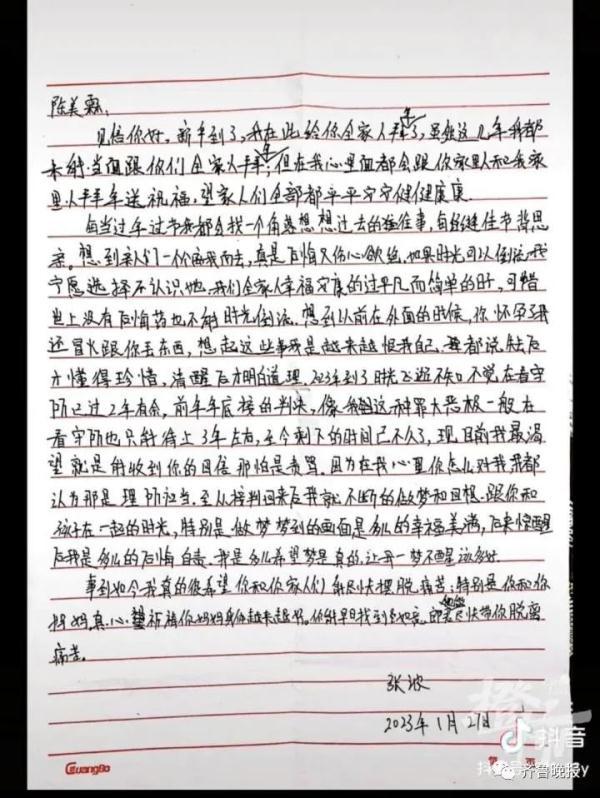 陈美霖:
见信你好。新年到了,我在此给你全家人拜年了,虽然这几年我都
未能当面跟你们全家人拜年,但在我心里面都会跟你家里人和我家
里人拜年送祝福,望家人们全部都平平安安健健康康.
每当过年过节我都会找一个角落想想过去的往事,每逢佳节倍思
亲。想到亲人们一个个离我而去,真是后悔又伤心欲绝,如果时光可以倒流,我
宁愿选择不认识她。我们全家人幸福安康的过平凡而简单的日子,可惜
世上没有后悔药也不能时光倒流。想到以前在外面的时候,你怀孕了我
还冒火跟你丢东西,想起这些事我是越来越恨我自己.都说失去后
才懂得珍惜,清醒后才明白道理.2023年到了时光飞逝不知不觉在看守
所已过2年有余,前年年底接的判决,像我们这一种罪大恶极一般在
看守所也只能待上3年左右,至今剩下的时间已不久了,现目前我最渴
望就是能收到你的回信那怕是责骂,因为在我心里你怎么对我我都
认为那是理所应当.至从接判回来后我就不断的做梦和回想跟你和
孩子在一起的时光,特别是做梦梦到的画面是多么的幸福美满,后来惊醒
后我是多么的后悔自责.我是多么希望梦是真的,让我一梦不醒该多好.
事到如今我真的很希望你和你家人们能尽快摆脱痛苦;特别是你和你
妈妈,真心祈祷你妈妈身体越来越好.你能早日找到 尽快带你脱离
痛苦。
张波
2023年1月27日
GuangBo
抖音
抖音号:
齐鲁晚报